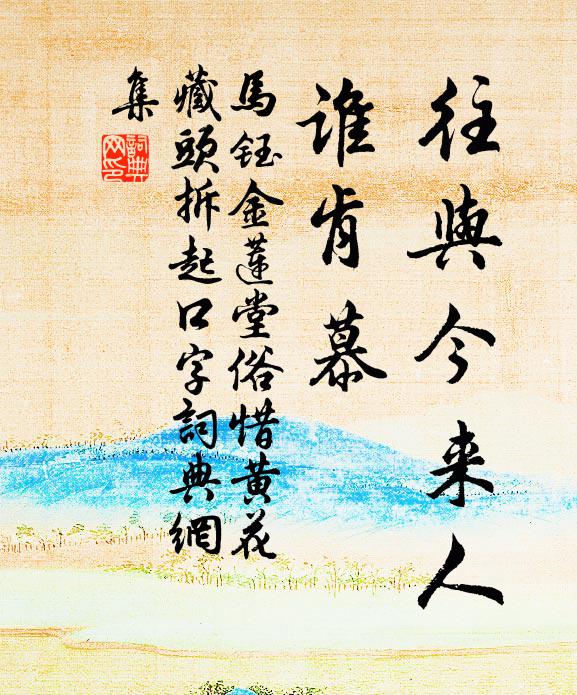 往與今来人
誰肯慕
馬鈺金蓮堂俗惜黄花
藏頭拆起口字詞典網
集
詞典
网印